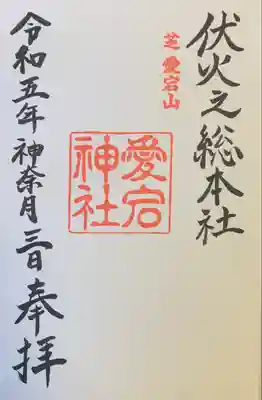 伏火之総本社
芝愛宕山
愛宕神社
令和五年神奈月三日奉拝